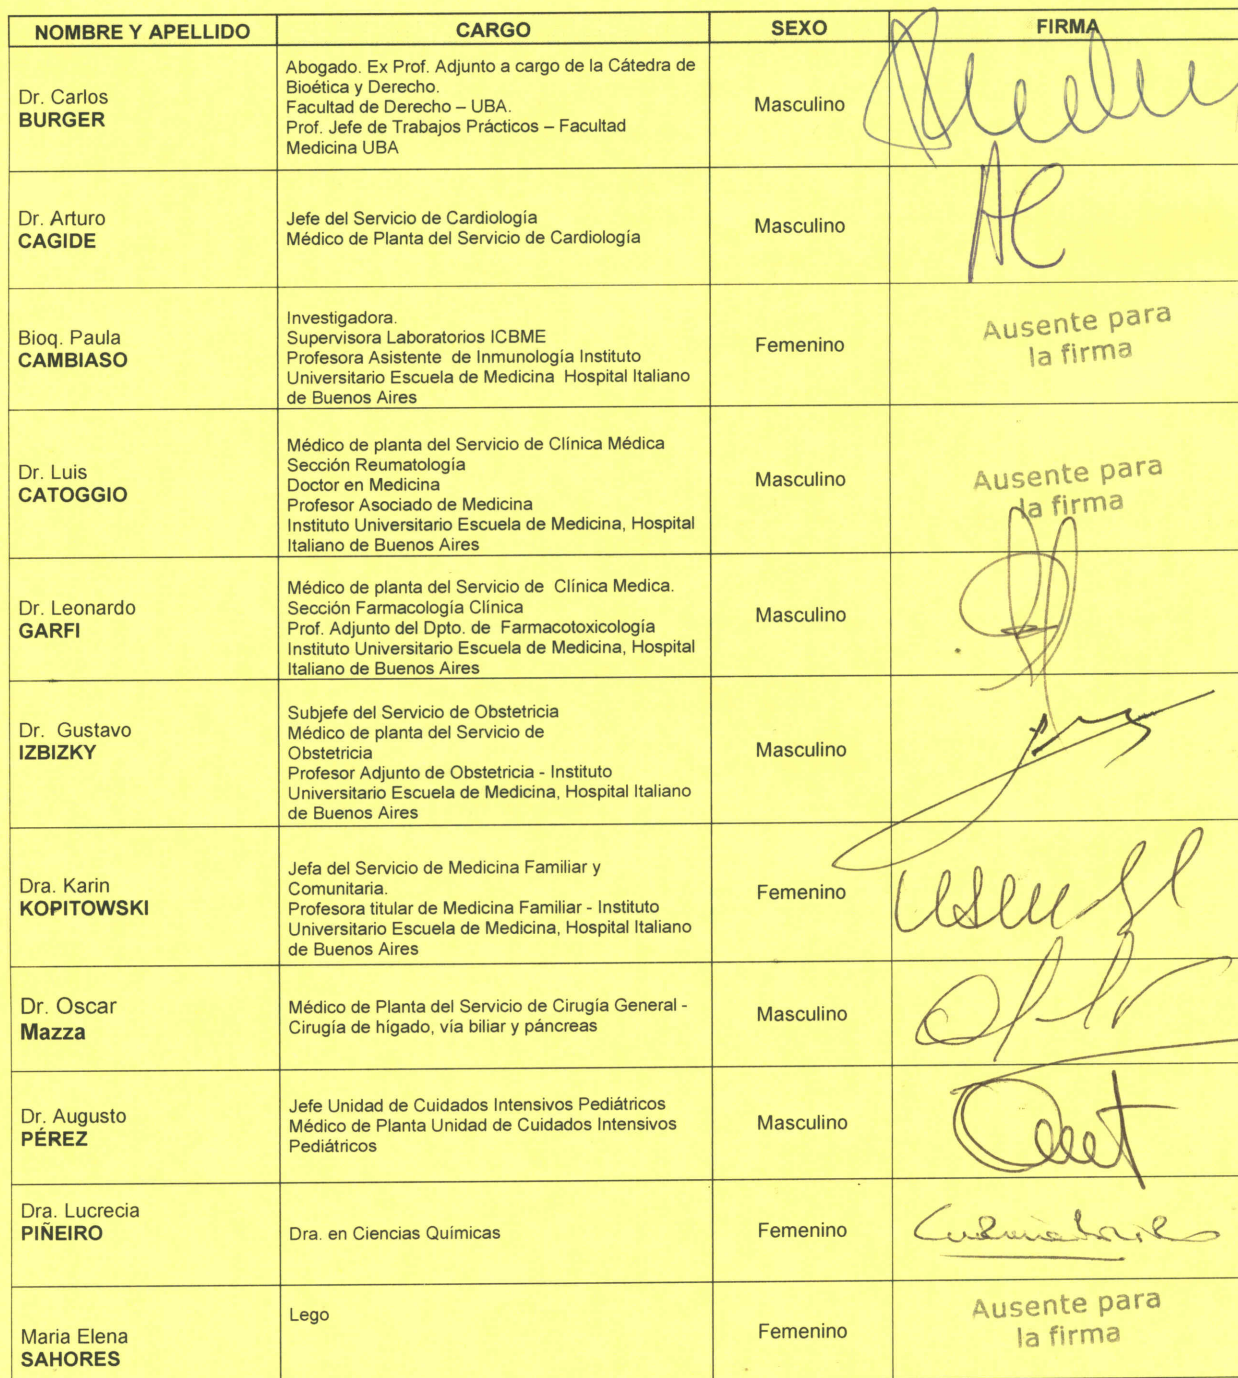 NOMBRE Y APELLIDO CARGO SEXO FIRMA
Dr. Carlos
BURGER
Abogado. Ex Prof. Adjunto a cargo de la Cátedra de
Bioética y Derecho.
Facultad de Derecho – UBA.
Prof. Jefe de Trabajos Prácticos – Facultad
Medicina UBA
Masculino
Dr. Arturo
CAGIDE
Jefe del Servicio de Cardiología
Médico de Planta del Servicio de Cardiología
Masculino
AC
Bioq. Paula
CAMBIASO
Investigadora.
Supervisora Laboratorios ICBME
Profesora Asistente de Inmunología Instituto
Universitario Escuela de Medicina Hospital Italiano
de Buenos Aires
Femenino
Ausente para
la firma
Dr. Luis
CATOGGIO
Médico de planta del Servicio de Clínica Médica
Sección Reumatología
Doctor en Medicina
Profesor Asociado de Medicina
Instituto Universitario Escuela de Medicina, Hospital
Italiano de Buenos Aires
Masculino
Ausente para
la firma
Dr. Leonardo
GARFI
Médico de planta del Servicio de Clínica Medica.
Sección Farmacología Clínica
Prof. Adjunto del Dpto. de Farmacotoxicología
Instituto Universitario Escuela de Medicina, Hospital
Italiano de Buenos Aires
Masculino
Dr. Gustavo
IZBIZKY
Subjefe del Servicio de Obstetricia
Médico de planta del Servicio de
Obstetricia
Profesor Adjunto de Obstetricia - Instituto
Universitario Escuela de Medicina, Hospital Italiano
de Buenos Aires
Masculino
Dra. Karin
KOPITOWSKI
Jefa del Servicio de Medicina Familiar y
Comunitaria.
Profesora titular de Medicina Familiar - Instituto
Universitario Escuela de Medicina, Hospital Italiano
de Buenos Aires
Femenino
Dr. Oscar
Mazza
Médico de Planta del Servicio de Cirugía General -
Cirugía de hígado, vía biliar y páncreas
Masculino
Dr. Augusto
PÉREZ
Jefe Unidad de Cuidados Intensivos Pediátricos
Médico de Planta Unidad de Cuidados Intensivos
Pediátricos
Masculino
Dra. Lucrecia
PIÑEIRO
Dra. en Ciencias Químicas
Femenino
Maria Elena
SAHORES
Lego
Femenino
Ausente para
la firma